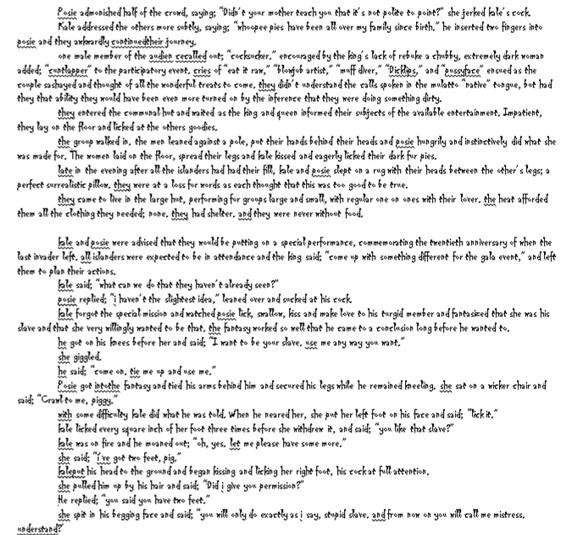 Posie admonished half of the crowd, saying; "Didn't your mother teach you that it's not polite to point?" she jerked kale's cock.
Kale addressed the others more subtly, saying; "whoopee pies have been all over my family since birth." he inserted two fingers into
posie and they awkwardly continuedtheir journey.
one male member of the audien cecalled out; "cocksucker." encouraged by the king's lack of rebuke a chubby, extremely dark woman
added; "cuntlapper" to the participatory event. cries of "eat it raw," "blowjob artist," "muff diver," "Dicklips," and "pussyface" ensued as the
couple sashayed and thought of all the wonderful treats to come. they didn't understand the calls spoken in the mulatto "native" tongue, but had
they that ability they would have been even more turned on by the inference that they were doing something dirty.
they entered the communal hut and waited as the king and queen informed their subjects of the available entertainment. Impatient,
they lay on the floor and licked at the others goodies.
the group walked in. the men leaned against a pole, put their hands behind their heads and posie hungrily and instinctively did what she
was made for. The women laid on the floor, spread their legs and kale kissed and eagerly licked their dark fur pies.
late in the evening after all the islanders had had their fill, kale and posie slept on a rug with their heads between the other's legs; a
perfect surrealistic pillow. they were at a loss for words as each thought that this was too good to be true.
they came to live in the large hut, performing for groups large and small, with regular one on ones with their lover. the heat afforded
them all the clothing they needed; none. they had shelter. and they were never without food.
kale and posie were advised that they would be putting on a special performance, commemorating the twentieth anniversary of when the
last invader left. all islanders were expected to be in attendance and the king said; "come up with something different for the gala event," and left
them to plan their actions.
kale said; "what can we do that they haven't already seen?"
posie replied; "i haven't the slightest idea," leaned over and sucked at his cock.
kale forgot the special mission and watched posie lick, swallow, kiss and make love to his turgid member and fantasized that she was his
slave and that she very willingly wanted to be that. the fantasy worked so well that he came to a conclusion long before he wanted to.
he got on his knees before her and said; "I want to be your slave. use me any way you want."
she giggled.
he said; "come on. tie me up and use me."
Posie got intothe fantasy and tied his arms behind him and secured his legs while he remained kneeling. she sat on a wicker chair and
said; "Crawl to me, piggy."
with some difficulty kale did what he was told. When he neared her, she put her left foot on his face and said; "lick it."
kale licked every square inch of her foot three times before she withdrew it, and said; "you like that slave?"
kale was on fire and he moaned out; "oh, yes. let me please have some more."
she said; "i've got two feet, pig."
kaleput his head to the ground and began kissing and licking her right foot, his cock at full attention.
she pulled him up by his hair and said; "Did i give you permission?"
He replied; "you said you have two feet."
she spit in his begging face and said; "you will only do exactly as i say, stupid slave. and from now on you will call me mistress.
understand?